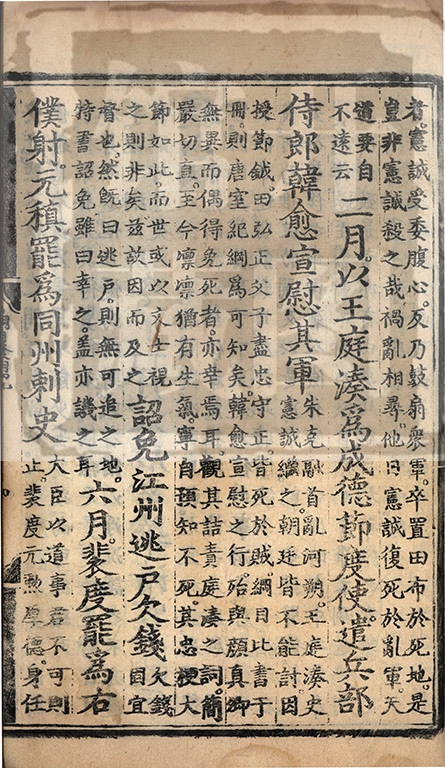 者。憲誠受委腹心。反乃鼓扇衆軍。卒置田布於死地。是
豈非憲誠殺之哉。禍亂相尋。他日憲誠復死於亂軍。天
道要自
不遠云
二月。以王庭湊爲成德節度使。遣兵部
侍郎韓愈宣慰其軍
朱克融首亂河朔。王庭湊史
憲誠繼之。朝廷皆不能討。因
授節鉞。田弘正父子盡忠守正。皆死於賊。綱目比書于
冊。則唐室紀綱爲可知矣。韓愈宣慰之行。殆與顔真卿
無異。而偶得免死者。亦幸焉耳。觀其詰責庭湊之詞。簡
嚴切直。至今凜凜猶有生氣。寧自預知不死。其忠授大
節如此。而世或以文士視
之。則非矣。兹故因而及之
詔免江州逃戶欠錢
欠錢
因宜
督也。然旣曰逃戶。則無可追之地。
特書詔免。雖曰幸之。蓋亦譏之耳
六月。裴度罷爲右
僕射。元稹罷爲同州刺史
大臣以道事君。不可則
止。裴度元勲厚德。身任